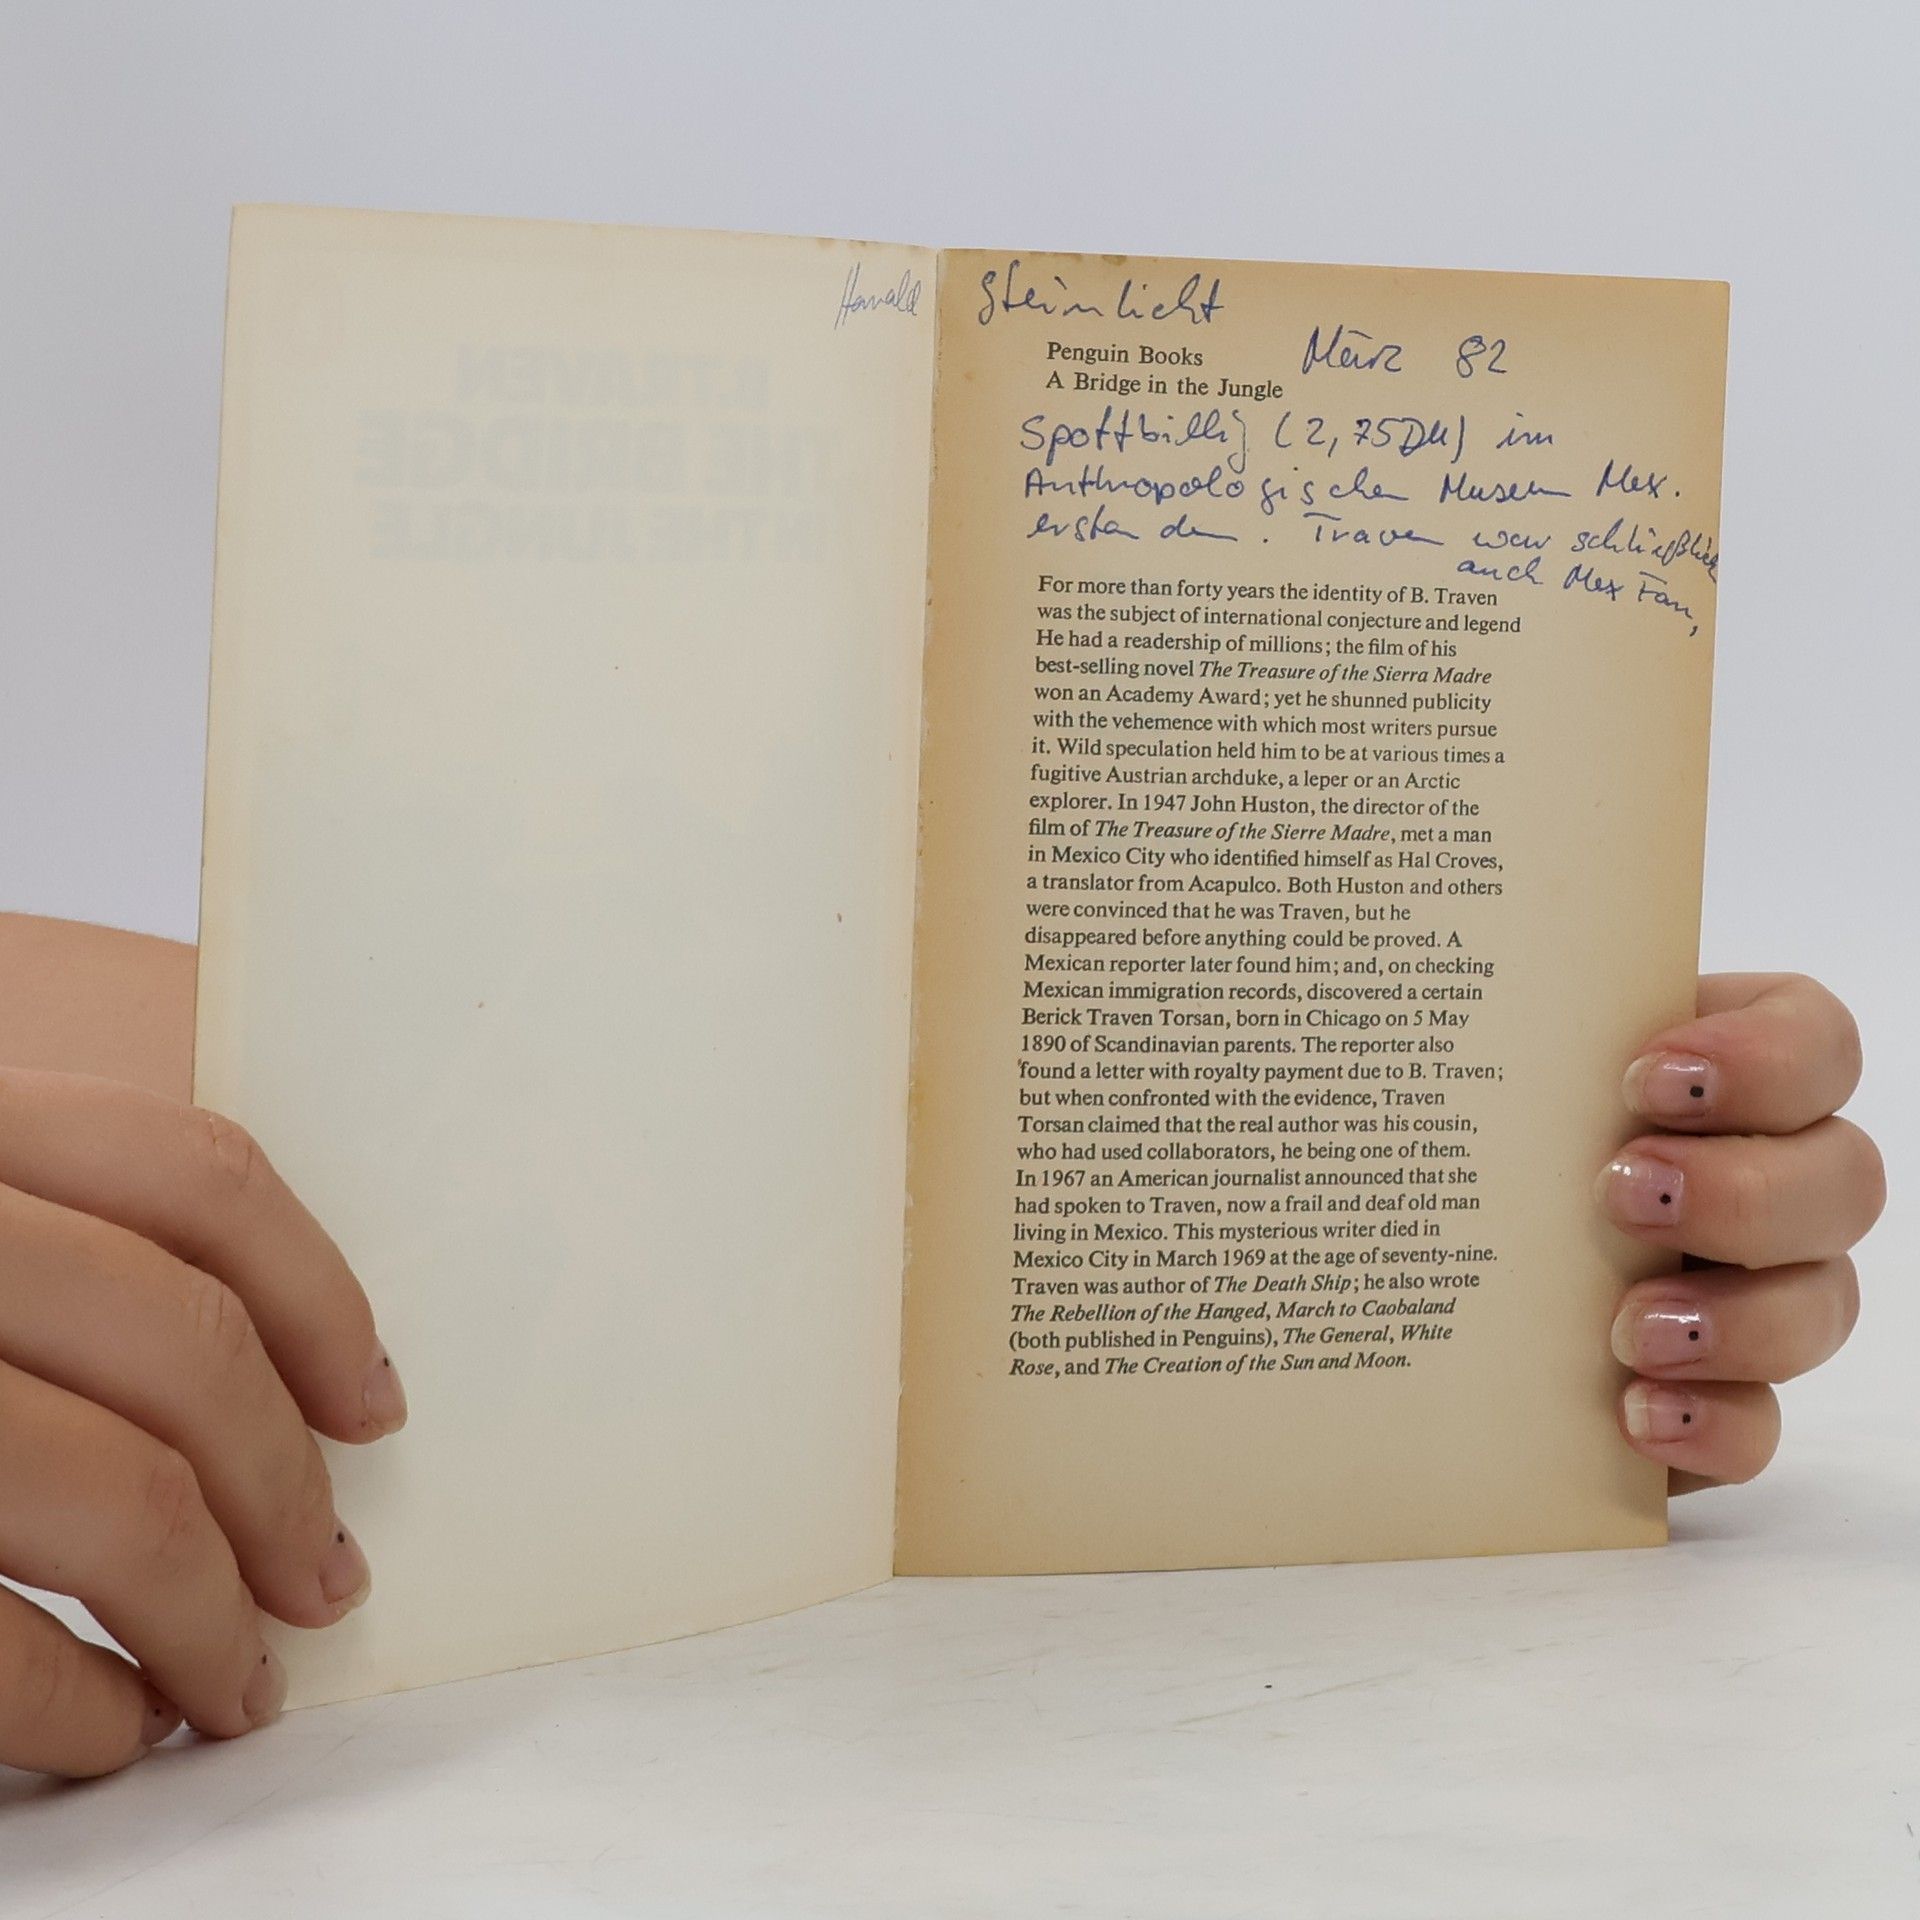 Harald Steinlicht
Penguin Books
März 82
A Bridge in the Jungle
Spottbillig (2,75DM) im
Anthropologischen Museum Mex.
erstanden. Traven war schließlich
auch Mex Fan,
For more than forty years the identity of B. Traven
was the subject of international conjecture and legend
He had a readership of millions; the film of his
best-selling novel The Treasure of the Sierra Madre
won an Academy Award; yet he shunned publicity
with the vehemence with which most writers pursue
it. Wild speculation held him to be at various times a
fugitive Austrian archduke, a leper or an Arctic
explorer. In 1947 John Huston, the director of the
film of The Treasure of the Sierre Madre, met a man
in Mexico City who identified himself as Hal Croves,
a translator from Acapulco. Both Huston and others
were convinced that he was Traven, but he
disappeared before anything could be proved. A
Mexican reporter later found him; and, on checking
Mexican immigration records, discovered a certain
Berick Traven Torsan, born in Chicago on 5 May
1890 of Scandinavian parents. The reporter also
found a letter with royalty payment due to B. Traven;
but when confronted with the evidence, Traven
Torsan claimed that the real author was his cousin,
who had used collaborators, he being one of them.
In 1967 an American journalist announced that she
had spoken to Traven, now a frail and deaf old man
living in Mexico. This mysterious writer died in
Mexico City in March 1969 at the age of seventy-nine.
Traven was author of The Death Ship; he also wrote
The Rebellion of the Hanged, March to Caobaland
(both published in Penguins), The General, White
Rose, and The Creation of the Sun and Moon.